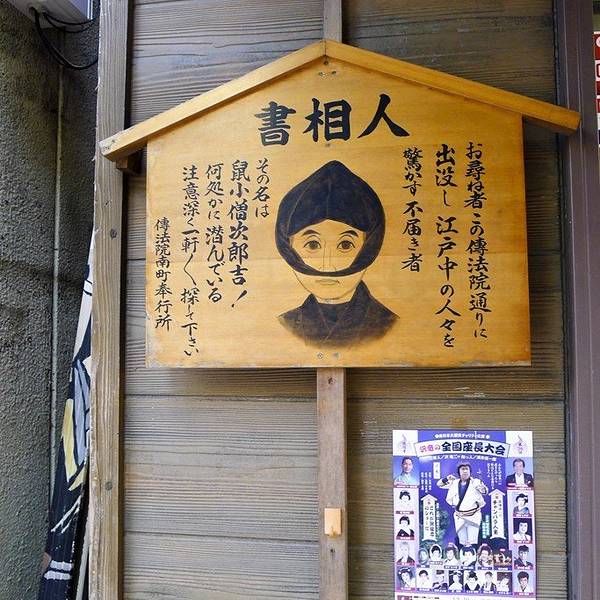 書相人
お尋ね者 この傳法院通りに
出没し 江戸中の人々を
驚かす 不届き者
その名は
鼠小僧次郎吉！
何処かに潜んでいる
注意深く一軒〳〵探して下さい
傳法院南町奉行所
全国座長大会
チャンバラ人生